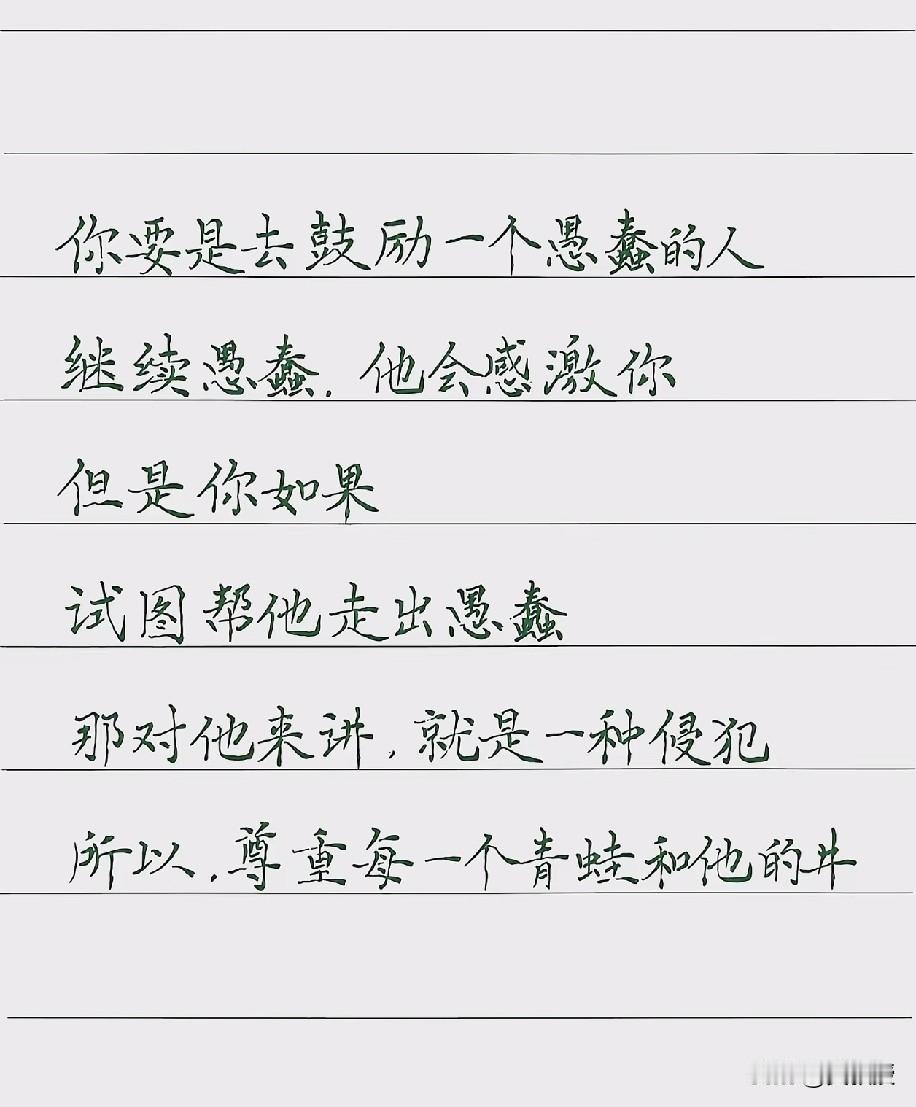 你要是去鼓励一个愚蠢的人
继续愚蠢,他会感激你
但是你如果
试图帮他走出愚蠢
那对他来讲,就是一种侵犯
所以,尊重每一个青蛙和他的井